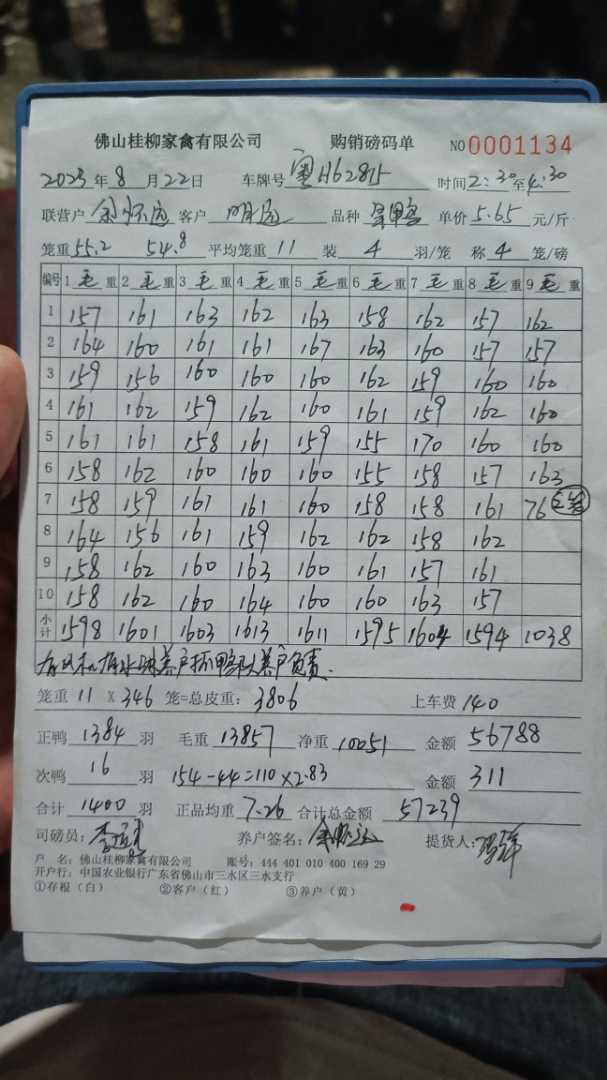 佛山桂柳家禽有限公司 购销磅码单 NO 0001134
2023年8月22日 车牌号 粤H62815 时间2:30至4:30
联营户 余怀远 客户 明运 品种 呈鸭 单价5.65元/斤
笼重55.2 54.8 平均笼重 11 装 4 羽/笼 称 4 笼/磅
编号 1毛重 2毛重 3毛重 4毛重 5毛重 6毛重 7毛重 8毛重 9毛重
1 157 161 163 162 163 158 162 157 162
2 164 160 161 161 167 163 160 157 157
3 159 156 160 160 160 162 159 160 160
4 161 162 159 162 160 161 159 162 160
5 161 161 158 161 159 155 170 160 160
6 158 162 160 160 160 155 158 157 163
7 158 159 161 161 160 158 158 161 76 2笼
8 164 156 161 159 162 162 158 162
9 158 162 160 163 160 161 157 161
10 158 162 160 164 160 160 163 157
小计 1598 1601 1603 1613 1611 1595 1604 1594 1038
养户抓鸭 养户负责.
笼重 11 X 346 笼=总皮重: 3806 上车费 140
正鸭 1384 羽 毛重 13857 净重 10051 金额 56788
次鸭 16 羽 154-44=110×2.83 金额 311
合计 1400 羽 正品均重 7.26 合计总金额 57239
司磅员: 养户签名: 余怀远 提货人:
户 名: 佛山桂柳家禽有限公司 账号: 444 401 010 400 169 29
开户行: 中国农业银行广东省佛山市三水区三水支行
①存根（白） ②客户（红） ③养户（黄）